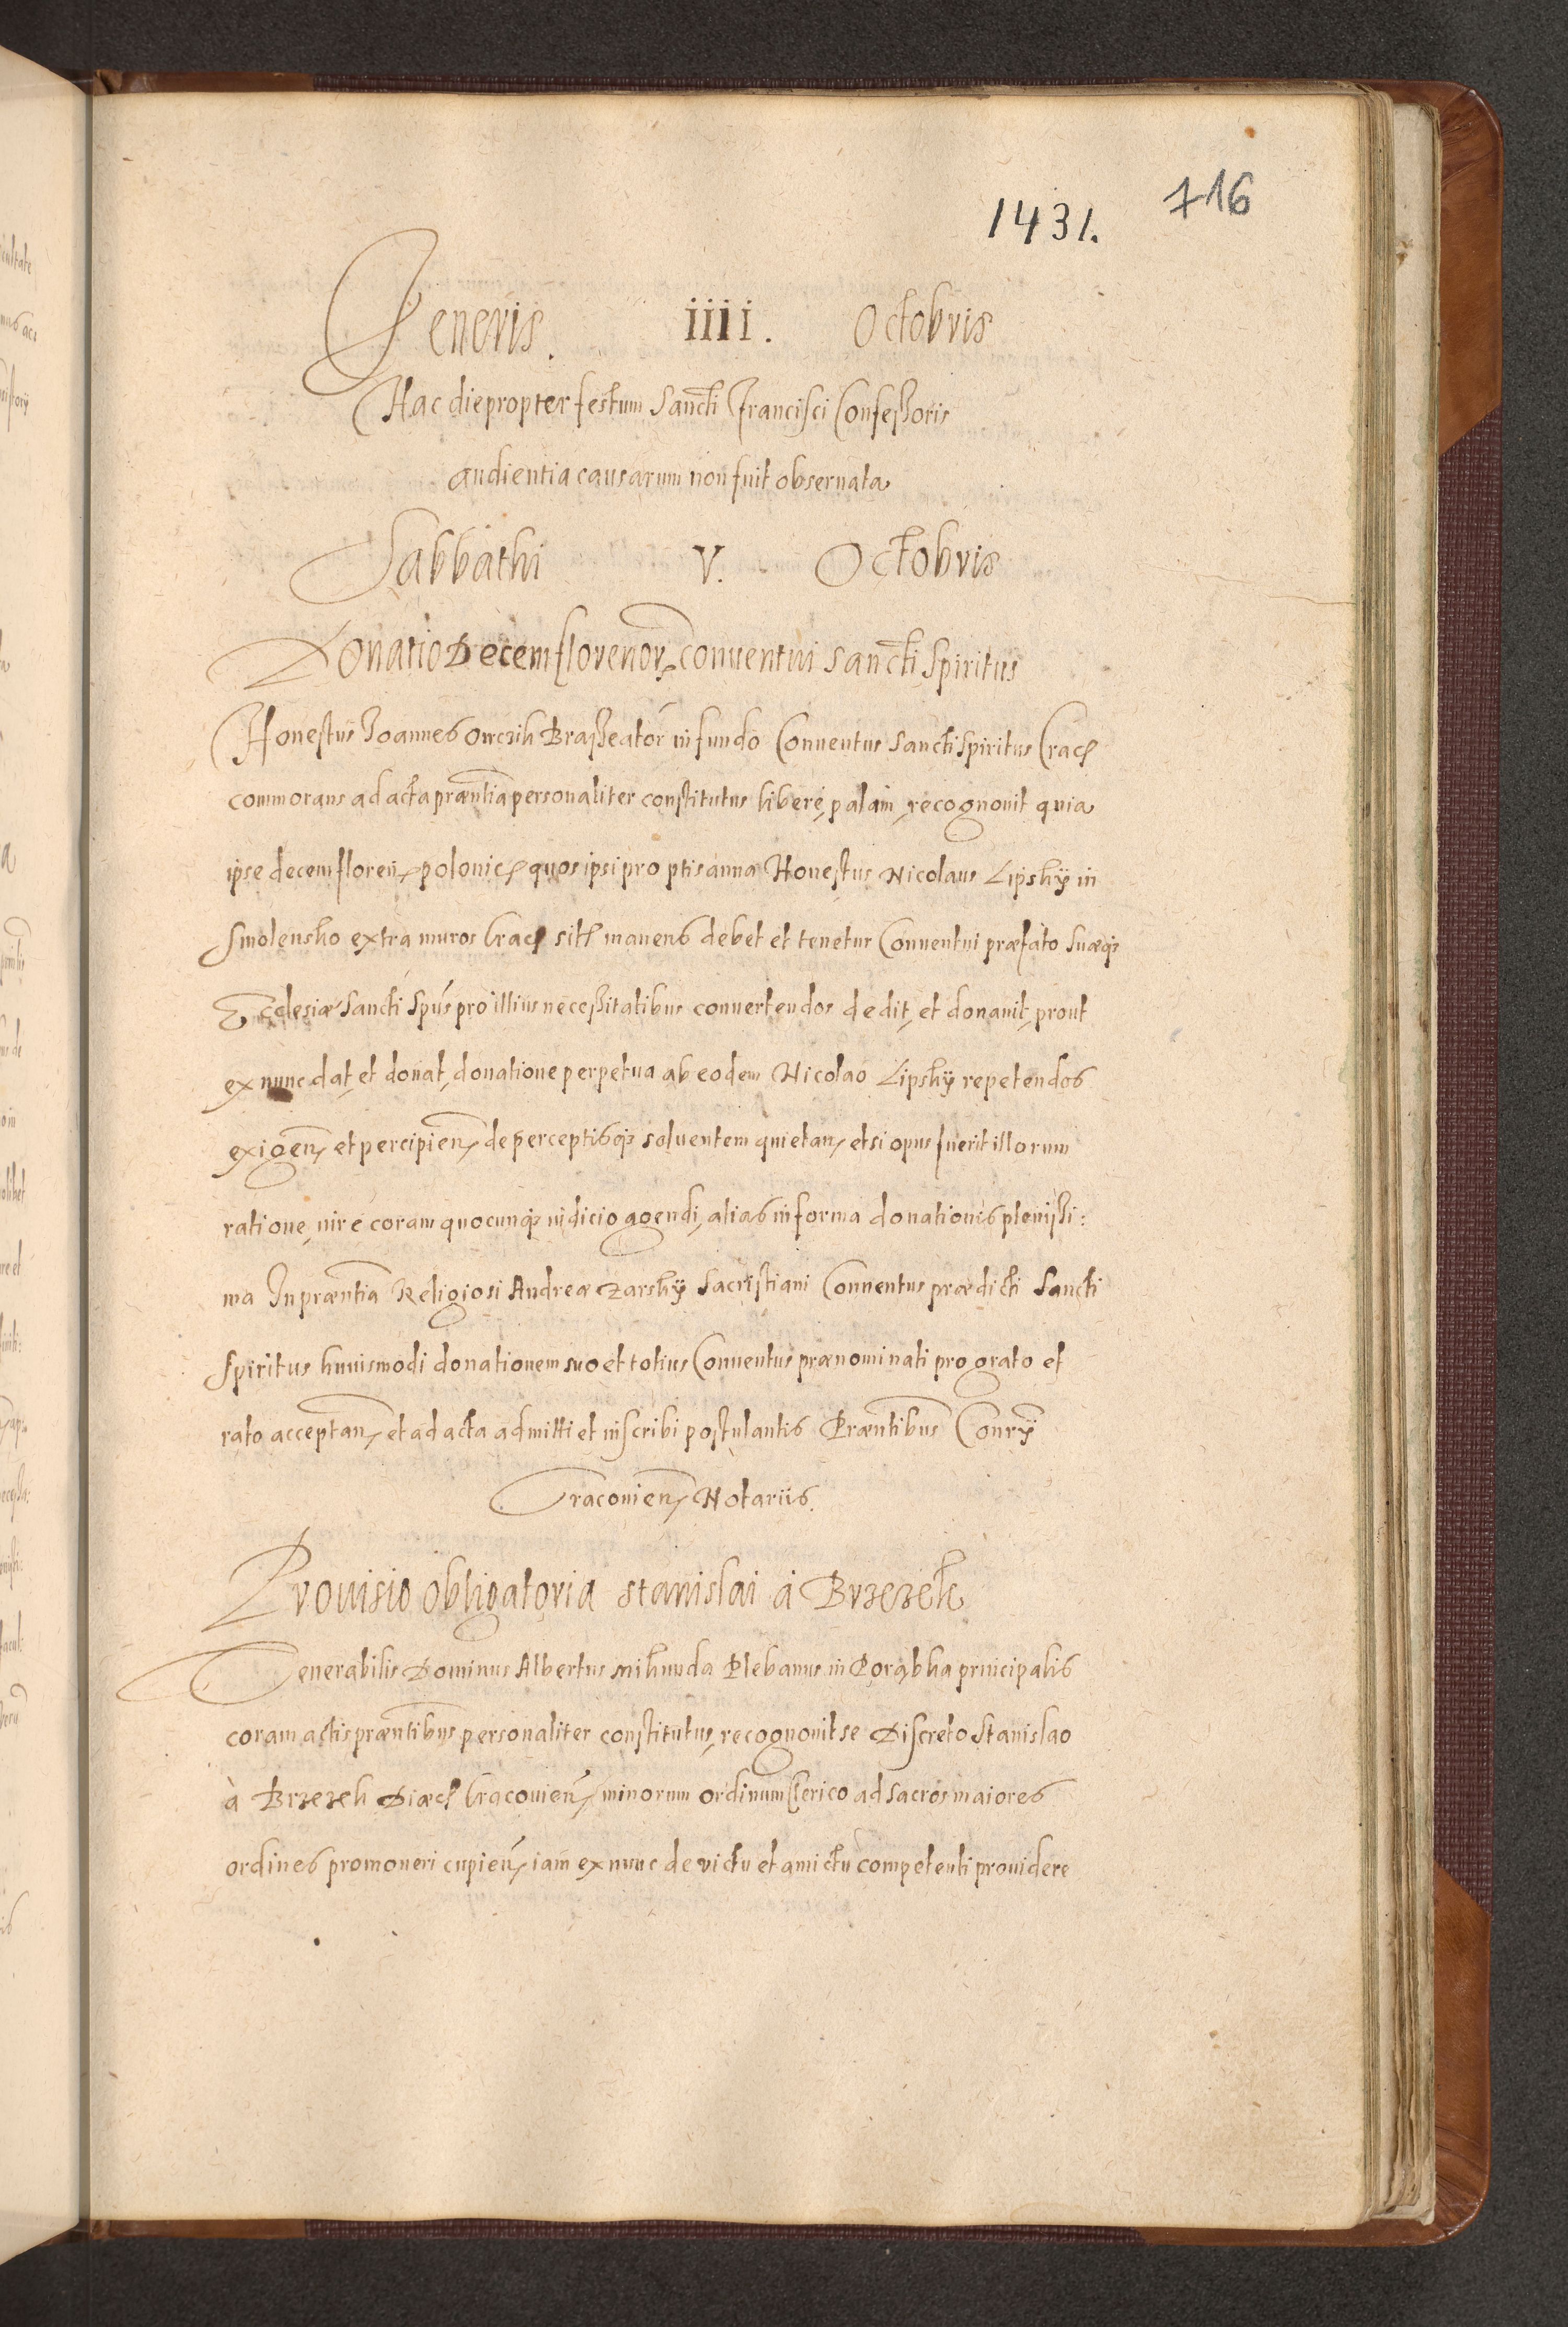 716
1431.
Veneris. iiii. Octobris
Hac die propter festum Sancti Francisci Confessoris
audientia causarum non fuit obseruata
Sabbathi V. Octobris
Donatio Decem florenor. conuentui sancti Spiritus
Honestus Joannes Owczik Brasseator in fundo Conuentus Sancti Spiritus Crac
commorans ad acta praentia personaliter constitutus libere, palam, recognouit quia
ipse decem floren. polonic quos ipsi pro ptisanna Honestus Nicolaus Lipsky in
Smolensko extra muros Crac sit manens debet et tenetur Conuentui praefato suaeq;
Ecclesiae Sancti Spus pro illius necessitatibus conuertendos dedit, et donauit, prout
ex nunc dat et donat, donatione perpetua ab eodem Nicolao Lipsky repetendos
exigen. et percipien. de perceptisq; soluentem quietan. et si opus fuerit illorum
ratione, iure coram quocunq; iudicio agendi, alias in forma donationis plenissi:
ma In praentia Religiosi Andreae Zarsky Sacristiani Conuentus praedicti Sancti
Spiritus huiusmodi donationem suo et totius Conuentus praenominati pro grato et
rato acceptan. et ad acta admitti et inscribi postulantis Praentibus Conrÿ
Cracouien. Notariis.
Prouisio obligatoria Stanislai à Brzezek
Venerabilis Dominus Albertus Mikunda Plebanus in Porąbka principalis
coram actis praentibus personaliter constitutus, recognouit se Discreto Stanislao
à Brzezek Diaec Cracouien. minorum ordinum Clerico ad sacros maiores
ordines promoueri cupien. iam ex nunc de victu et amictu competenti prouidere